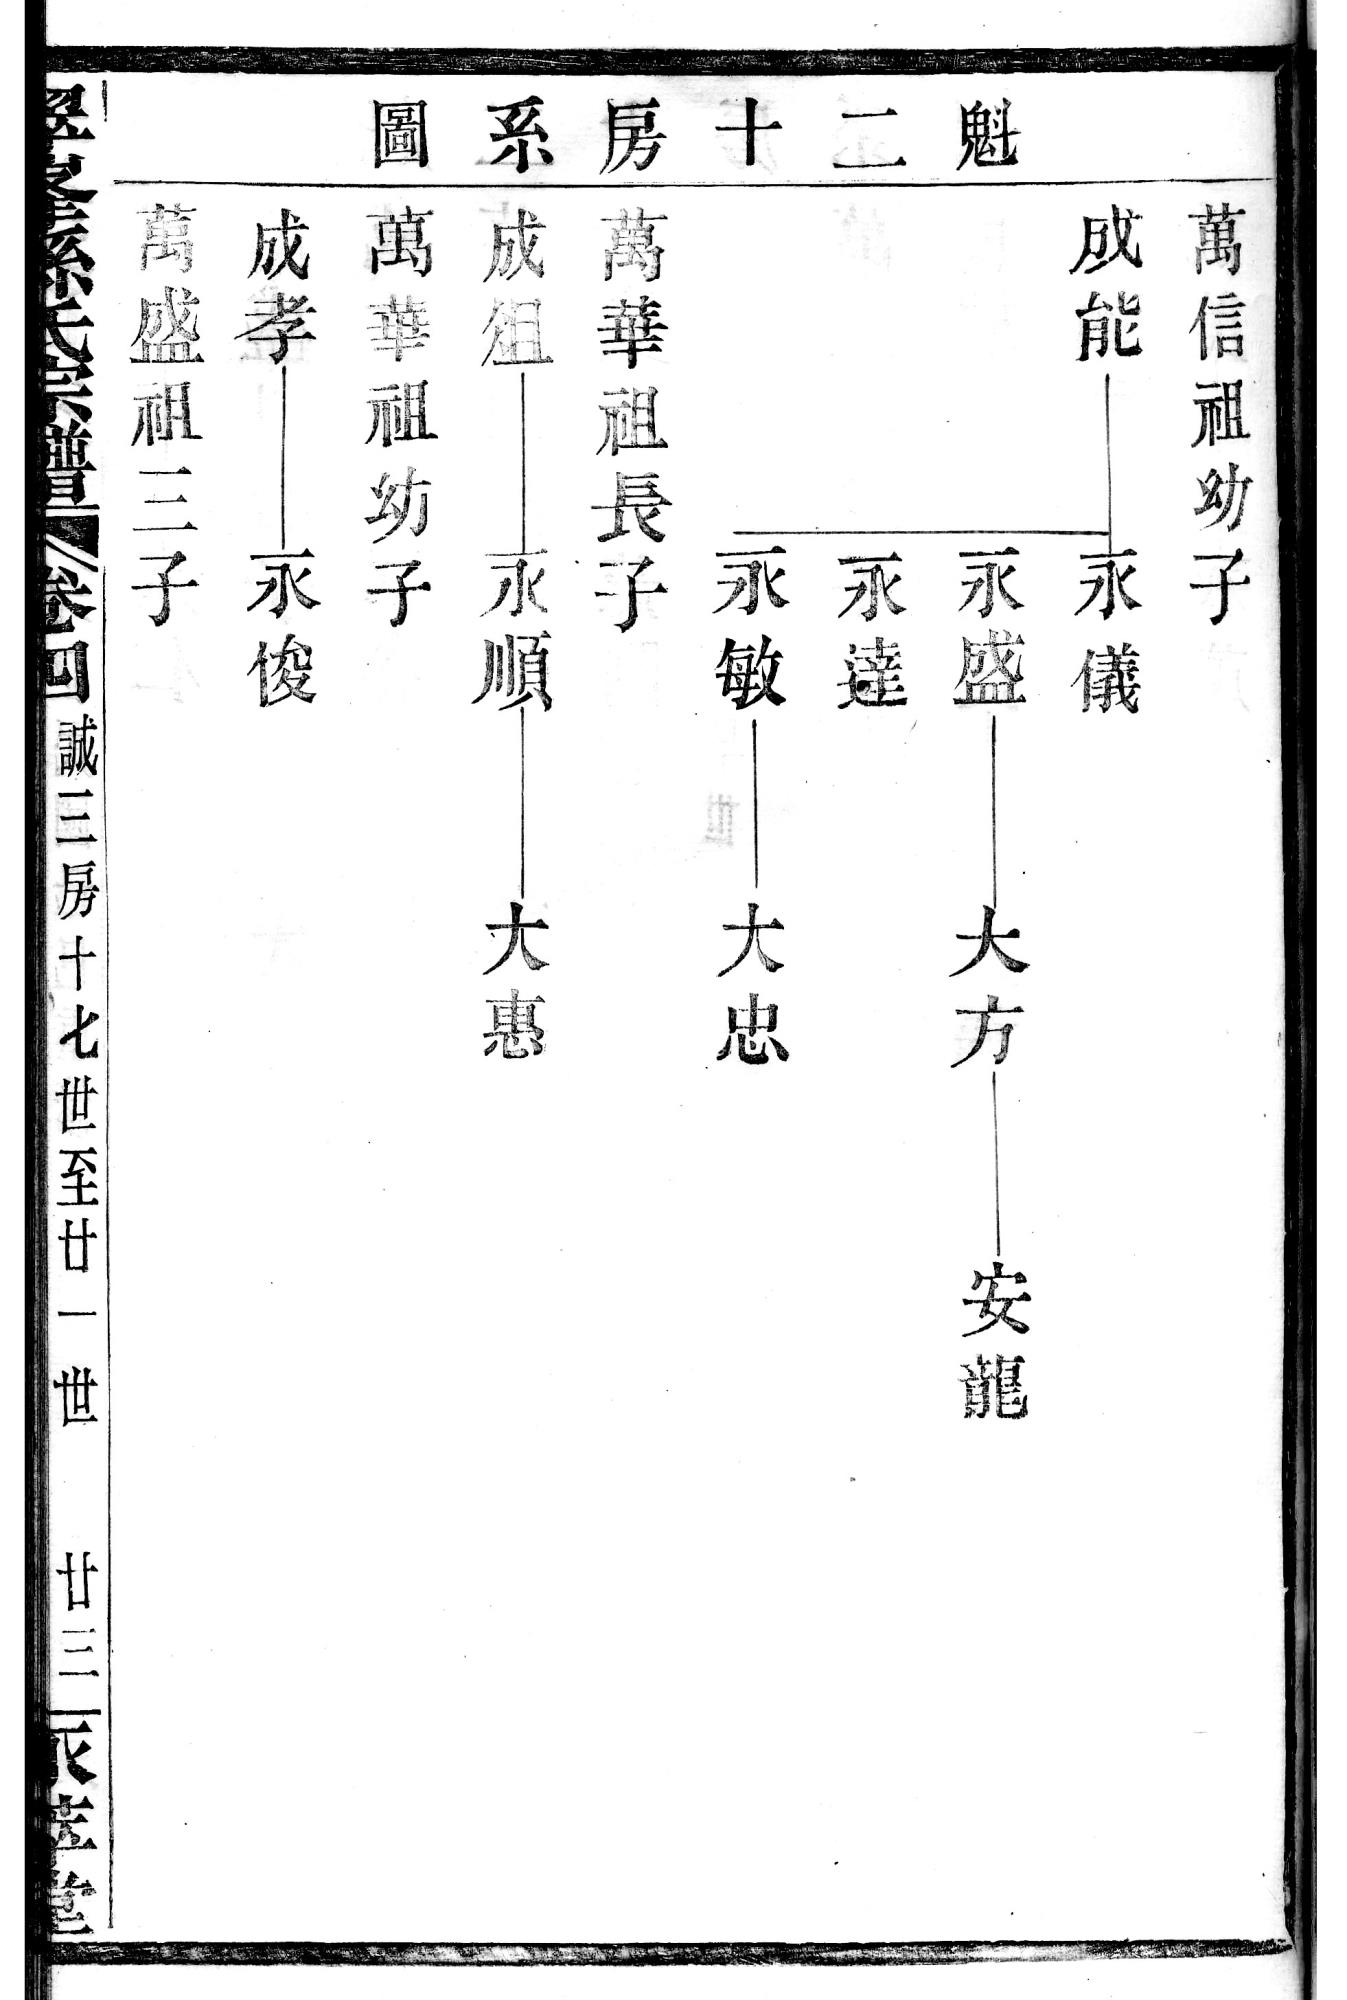 魁二十房系圖
萬信祖幼子
成能 永儀
永盛 大方 安龍
永達
永敏 大忠
萬華祖長子
成徂 永順 大惠
萬華祖幼子
成孝 永俊
萬盛祖三子
孫氏宗譜 卷四 誠三房十七世至廿一世 廿三 永 堂